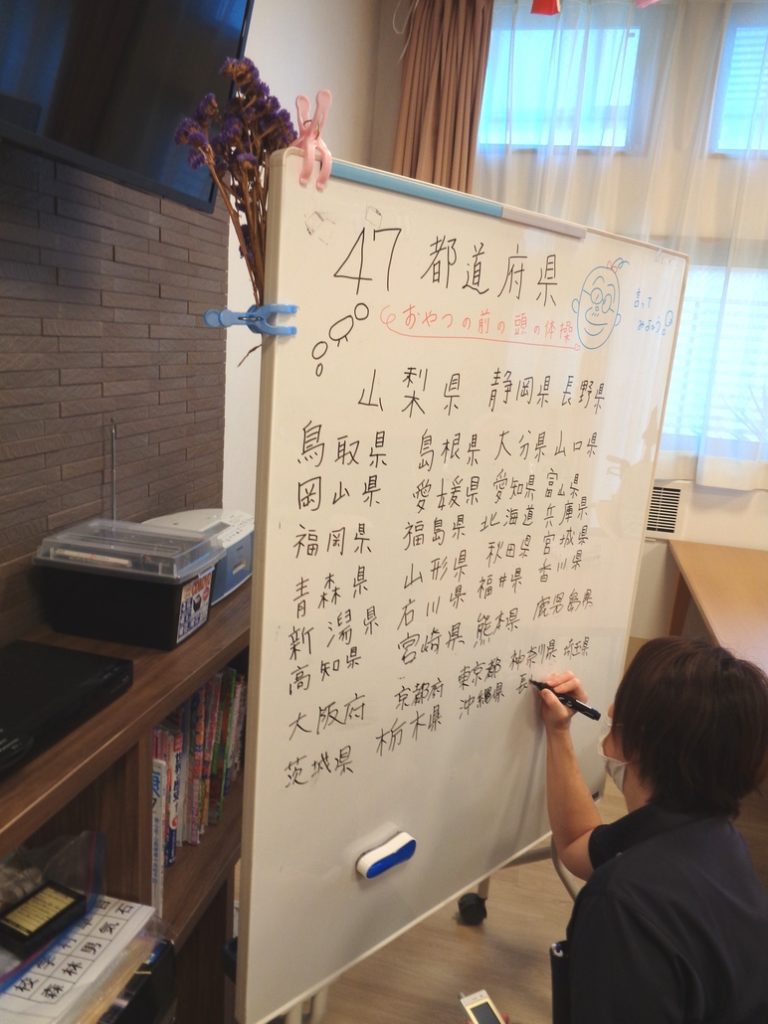 47 都道府県
おやつの前の頭の体操
言って
みよう!
山梨県 静岡県 長野県
鳥取県 島根県 大分県 山口県
岡山県 愛媛県 愛知県 富山県
福岡県 福島県 北海道 兵庫県
青森県 山形県 秋田県 宮城県
新潟県 石川県 福井県 香川県
高知県 宮崎県 熊本県 鹿児島県
大阪府 京都府 東京都 神奈川県 埼玉県
茨城県 栃木県 沖縄県 長
校 学 村 年 百 石
森 林 男 気